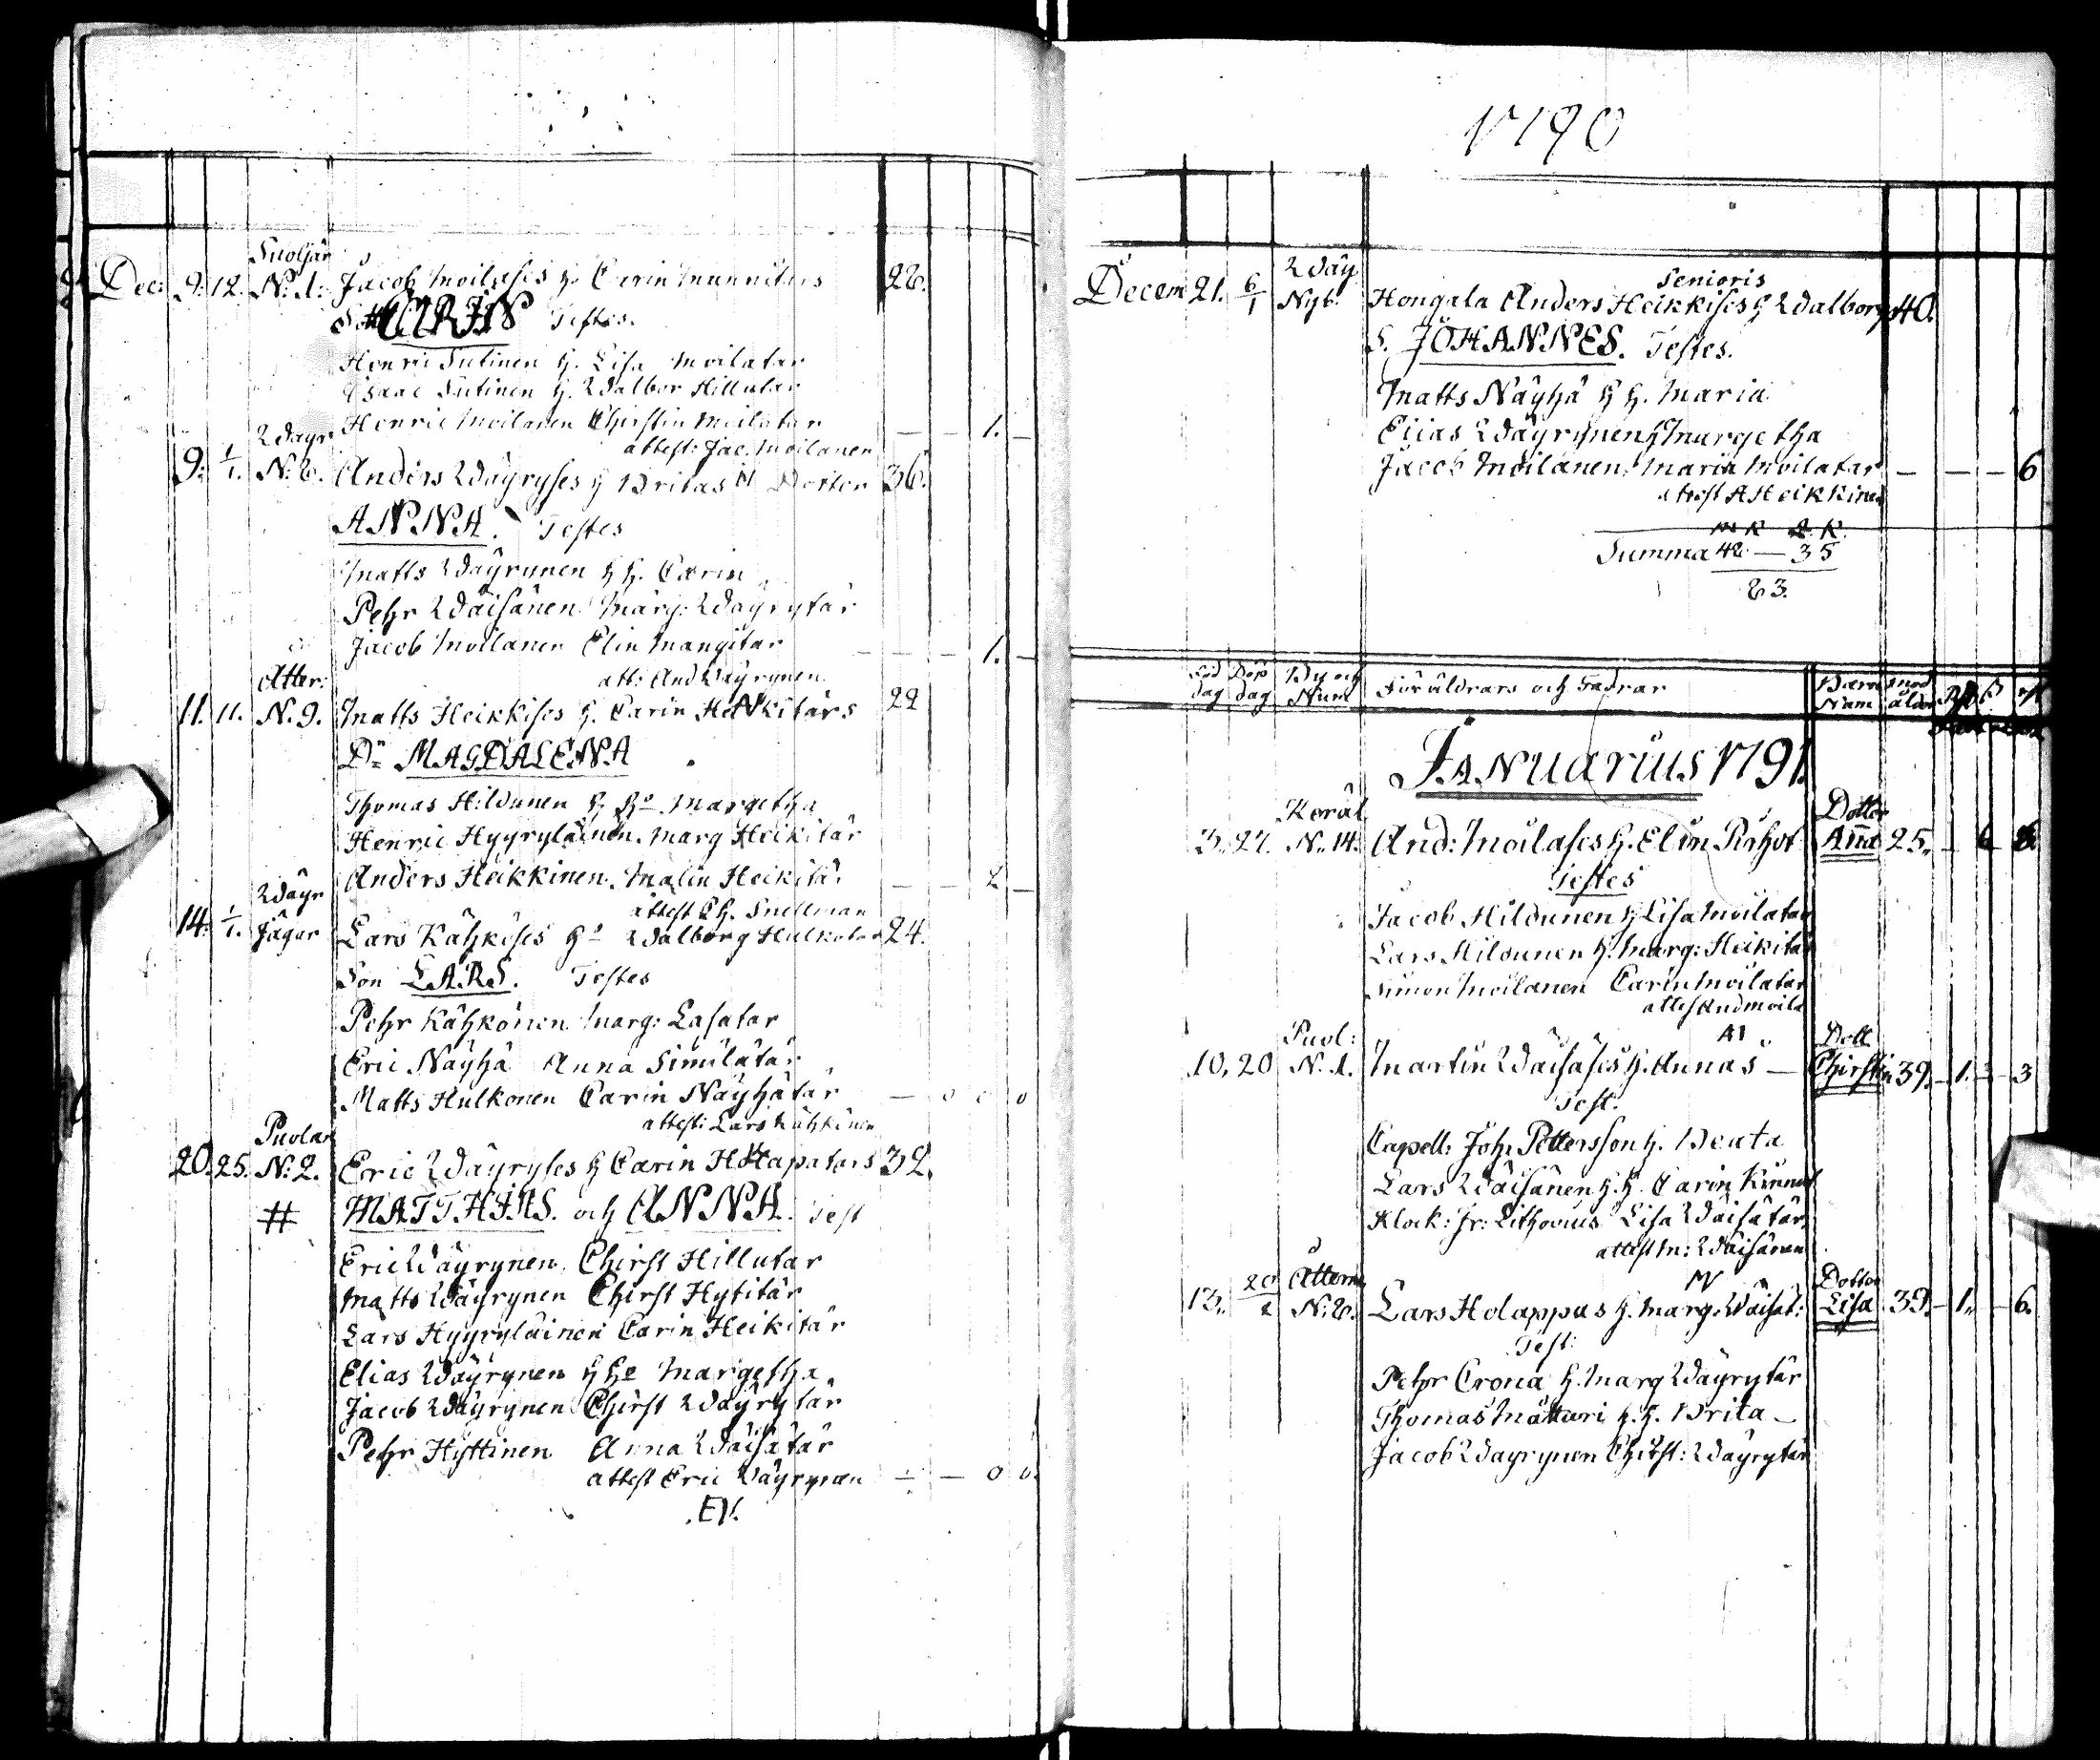 Suoljär
Dec: 9. 12. N:1: Jacob Moilases h. Carin Mannitars 28.
Dott CARIN Testes.
Henric Sutinen h. Lisa Moilatar
Isaac Sutinen h. Walbor Hillutar
Henric Moilanen Chirstin Moilatar — — 1. —
attest: Jac. Moilanen
Wäyr
9: 1/1. N:6. Anders Wäyryses h Britas Dotter 36.
ANNA. Testes
Matts Wäyrynen h h. Carin
Pehr Wäisänen Marg: Wäyrytär
Jacob Moilanen Elin Mangitar — — 1. —
att: And Wäyrynen
Atter:
11. 11. N.9. Matts Heikkises h. Carin Heikitärs 22
Dr MAGDALENA
Thomas Hildunen h ho Margetha
Henric Hyyryläinen. Marg Heikitär
Anders Heikkinen. Malin Heikitär — — 2 —
attest Ch. Snellman
Wäyr
14. 1/1. Jägar Lars Kähköses ho Walborg Hulkotar 24.
Son LARS. Testes
Pehr Kähkönen Marg: Lasatar
Eric Näyhä Anna Similätär
Matts Hulkonen Carin Näyhätär — 0 0 0
attest: Lars Kähkönen
Puolan
20. 25. N:2. Eric Wäyryses h Carin Holapatars 32.
# MATTHIAS. och ANNA. Test
Eric Wäyrynen. Chirst Hillutar
Matts Wäyrynen Chirst Hytitär
Lars Hyyryläinen Carin Heikitär
Elias Wäyrynen h ho Margetha
Jacob Wäyrynen Chirst Wäyrytär
Pehr Hyttinen Anna Wäisätär
attest Eric Wäyrynen — — 0 0.
1790
Wäy Senioris
Decem 21. 6/1 Nyb. Hongala Anders Heikkises h Walborg 40.
S. JOHANNES. Testes.
Matts Näyhä h h. Maria
Elias Wäyrynen h Margetha
Jacob Moilanen. Maria Moilatar — — — 6
attest A Heikkinen
Summa 48 — 35
83.
Föd Döp By och Föräldrars och Fadrar Barn mod
dag dag Num Nam ålder
Januarius 1791.
Keräl Dotter
3. 27. N. 14. And: Moilases h. Elin Pirhot Anna 25.
Testes
Jacob Hildunen h Lisa Moilatar
Lars Hildunen h. Marg: Heikitär
Simon Moilanen Carin Moilatar
attest And Moila
Puol: Dott
10, 20 N. 1. Martin Wäisäses h. Annas — Chirstin 39. — 1. — 3
Test.
Capell: Joh: Pettersson h. Beata
Lars Wäisänen h. h. Carin Kinnut
Klock: Jr: Lithovius Lisa Wäisätär
attest M: Wäisänen
Atterm Dotter
13. 20/2 N:6. Lars Holappas h. Marg. Wäisät: Lisa 39. — 1. — 6.
Test:
Pehr Crona h. Marg Wäyrytär
Thomas Mättari h. h. Brita —
Jacob Wäyrynen Chirst: Wäyrytär